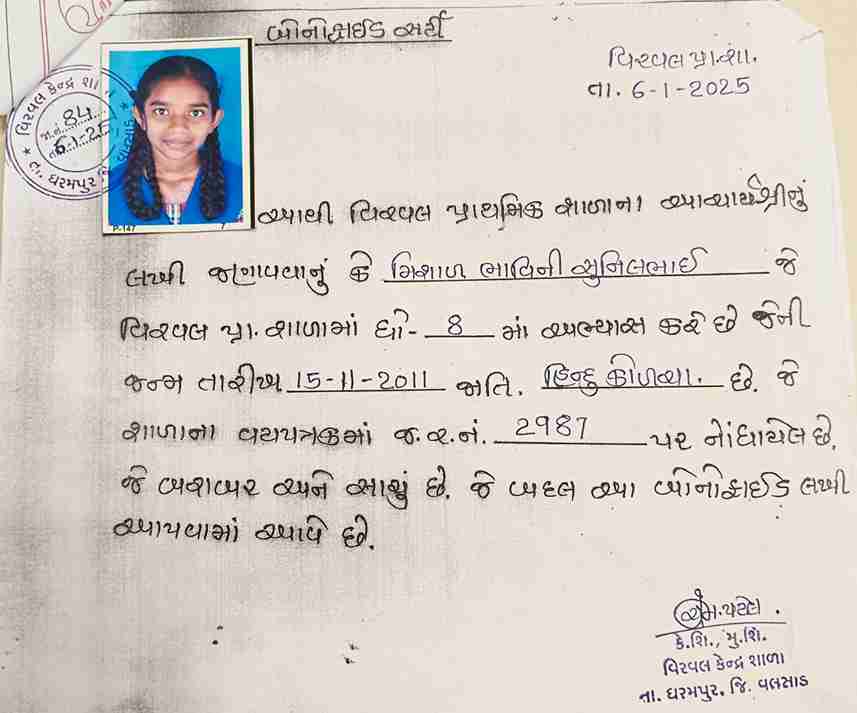 બોનોફાઈડ સર્ટી
વિરવલ પ્રા.શા.
તા. 6-1-2025
વિરવલ કેન્દ્ર શા
જા.નં. 84
તા. 6-1-25
તા. ધરમપુર જિ. વલસાડ
P-147
આથી વિરવલ પ્રાથમિક શાળાના આચાર્યશ્રીનું
લખી જણાવવાનું કે મિશાળ ભાવિની સુનિલભાઈ જે
વિરવલ પ્રા. શાળામાં ધો- 8 માં અભ્યાસ કરે છે જેની
જન્મ તારીખ 15-11-2011 જાતિ. હિન્દુ કોળચા. છે. જે
શાળાના વયપત્રકમાં જ.ર.નં. 2987 પર નોંધાયેલ છે.
જે બરાબર અને સાચું છે. જે બદલ આ બોનોફાઈડ લખી
આપવામાં આવે છે.
એમ. પટેલ.
કે.શિ., મુ.શિ.
વિરવલ કેન્દ્ર શાળા
તા. ધરમપુર. જિ. વલસાડ